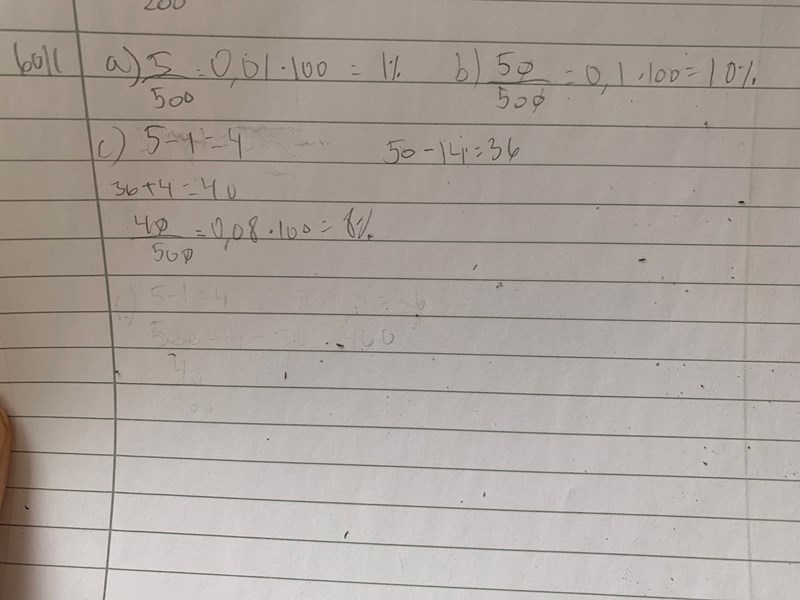 200
6011 a) 5/500 = 0,01 · 100 = 1% b) 50/500 = 0,1 · 100 = 10%
c) 5-1=4 50-14=36
36+4=40
40/500 = 0,08 · 100 = 8%
5-1=4